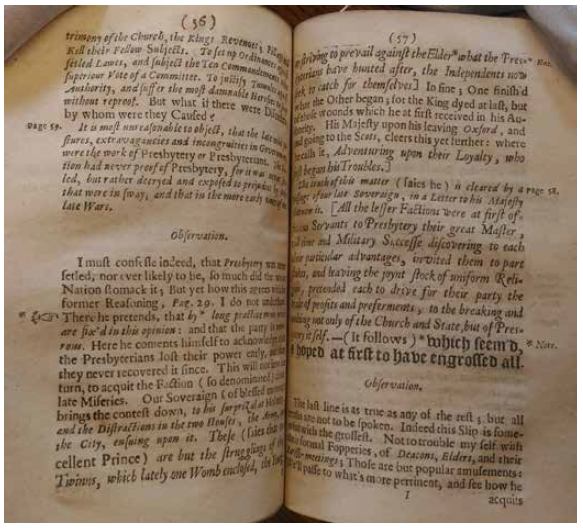 (56)
trimony of the Church, the Kings Revenues;
Kill their Fellow Subjects. To set up Ordinances
setled Lawes, and subject the Ten Commandements
superiour Vote of a Committee. To justify Tumults
Authority, and suffer the most damnable Heresies
without reproof. But what if there were
by whom were they Caused?
Page 59.
It is most unreasonable to object, that the late
stures, extravagancies and incongruities in
were the work of Presbytery or Presbyterians.
tion had never proof of Presbytery, for it was never
led, but rather decryed and exposed to prejudice by
that were in sway, and that in the more early
late Wars.
Observation.
I must confesse indeed, that Presbytery was never
setled, nor ever likely to be, so much did the
Nation stomack it; But yet how this agrees
former Reasoning, Pag. 29. I do not
* There he pretends, that by* long
are fix'd in this opinion: and that the party is
rous. Here he contents himself to acknowledge
the Presbyterians lost their power early,
they never recovered it since. This will not
turn, to acquit the Faction (so denominated)
late Miseries. Our Sovereign (of blessed
brings the contest down, to his surprisal at
and the Distractions in the two Houses, the Army,
the City, ensuing upon it. These (saies
cellent Prince) are but the struglings
Twinns, which lately one Womb enclosed, the
(57)
striving to prevail against the Elder* what the Pres-
* Note.
terians have hunted after, the Independents now
seek to catch for themselves] In fine; One finish'd
what the Other began; for the King dyed at last, but
of those wounds which he at first received in his Au-
thority. His Majesty upon his leaving Oxford, and
going to the Scots, cleers this yet further: where
he calls it, Adventuring upon their Loyalty, who
first began his Troubles.]
The truth of this matter (saies he) is cleared by a
Page 58.
passage of our late Soveraign, in a Letter to his Majesty
[All the lesser Factions were at first of-
Servants to Presbytery their great Master,
time and Military Successe discovering to each
their particular advantages, invited them to part
stakes, and leaving the joynt stock of uniform Reli-
gion, pretended each to drive for their party the
trade of profits and preferments, to the breaking and
undoing not only of the Church and State, but of Pres-
bytery it self.—(it follows) * which seem'd,
* Note.
& hoped at first to have engrossed all.
Observation.
The last line is as true as any of the rest; but all
truths are not to be spoken. Indeed this Slip is some-
what with the grossest. Not to trouble my self with
formal Fopperies, of Deacons, Elders, and their
meetings; Those are but popular amusements:
passe to what's more pertinent, and see how he
I
acquits